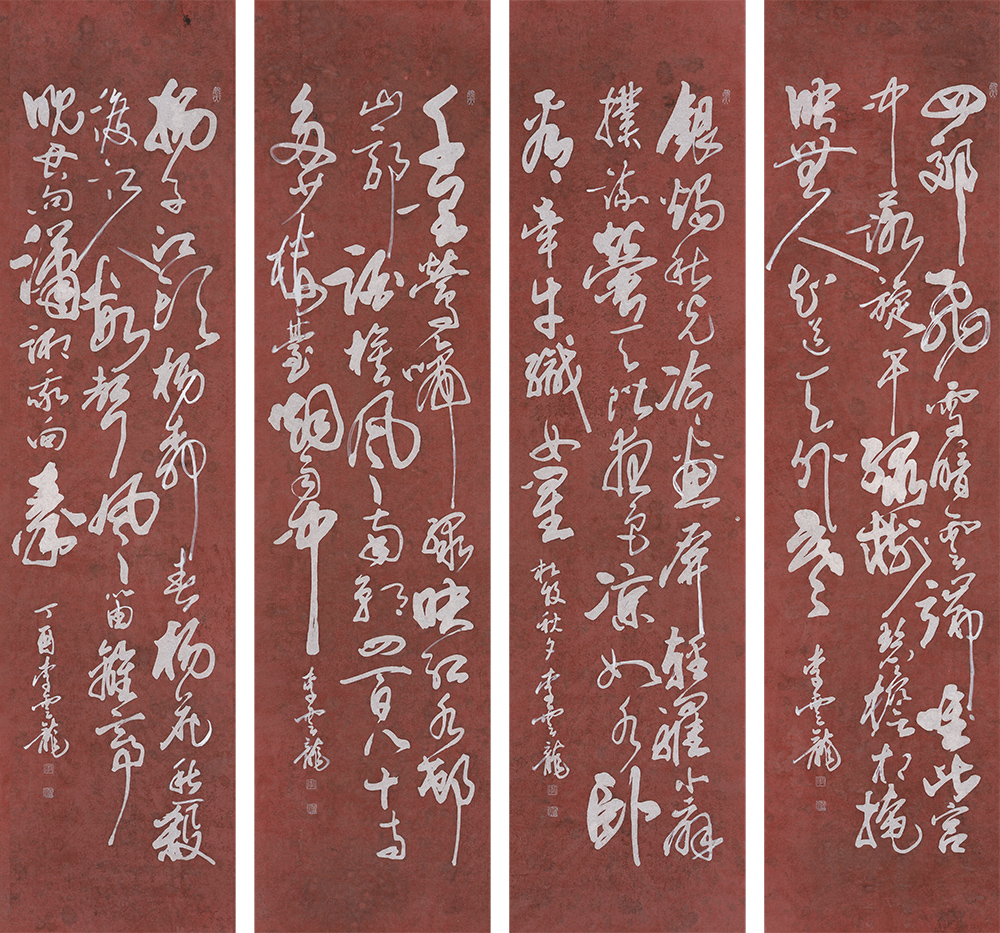 四郊飛雪暗雲端唯此宮
中落旋干綠樹碧檐相掩
映無人知道天外寒
李雲龍
銀燭秋光冷畫屏輕羅小扇
撲流螢天階夜色涼如水臥
看牽牛織女星
杜牧秋夕李雲龍
千里鶯啼綠映紅水村
山郭酒旗風南朝四百八十寺
多少樓臺烟雨中
李雲龍
揚子江頭楊柳春楊花愁殺
渡江人數聲風笛離亭
晚君向瀟湘我向秦
丁酉李雲龍